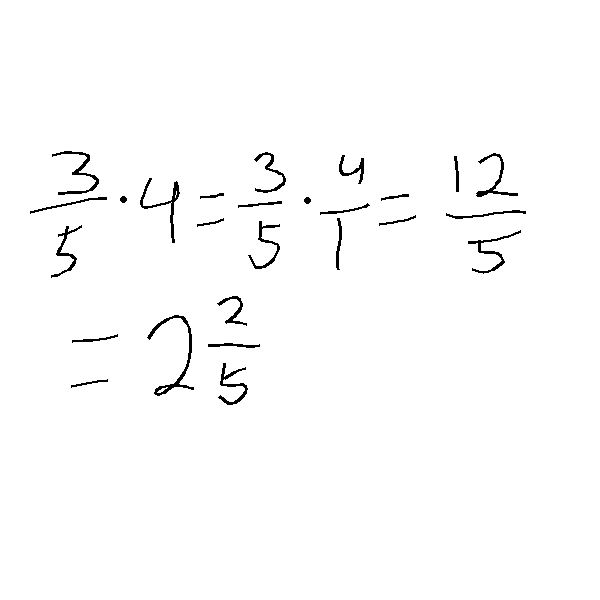 3/5 · 4 = 3/5 · 4/1 = 12/5
= 2 2/5